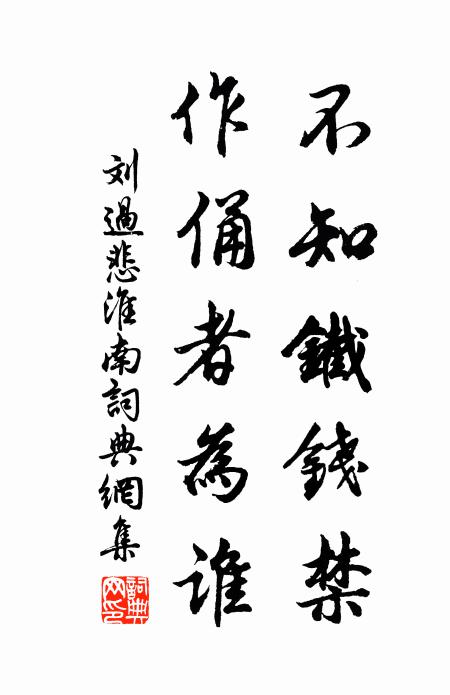 不知鐵錢禁
作俑者為誰
刘過悲淮南詞典網集
詞典網印